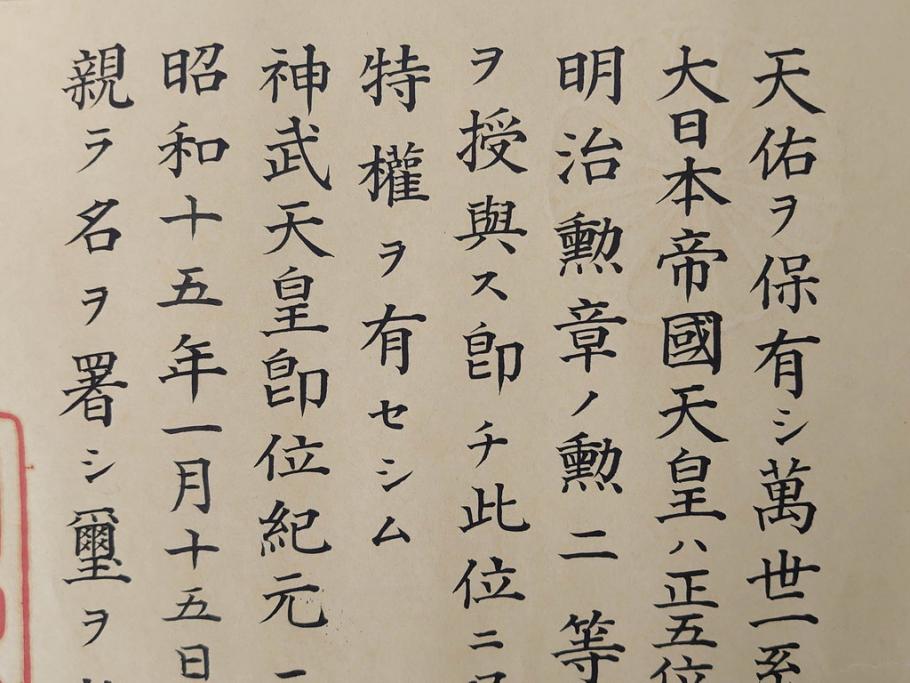 天佑ヲ保有シ萬世一系
大日本帝國天皇ハ正五位
明治勳章ノ勳二等
ヲ授與ス卽チ此位ニ
特權ヲ有セシム
神武天皇卽位紀元一
昭和十五年一月十五日
親ラ名ヲ署シ璽ヲ